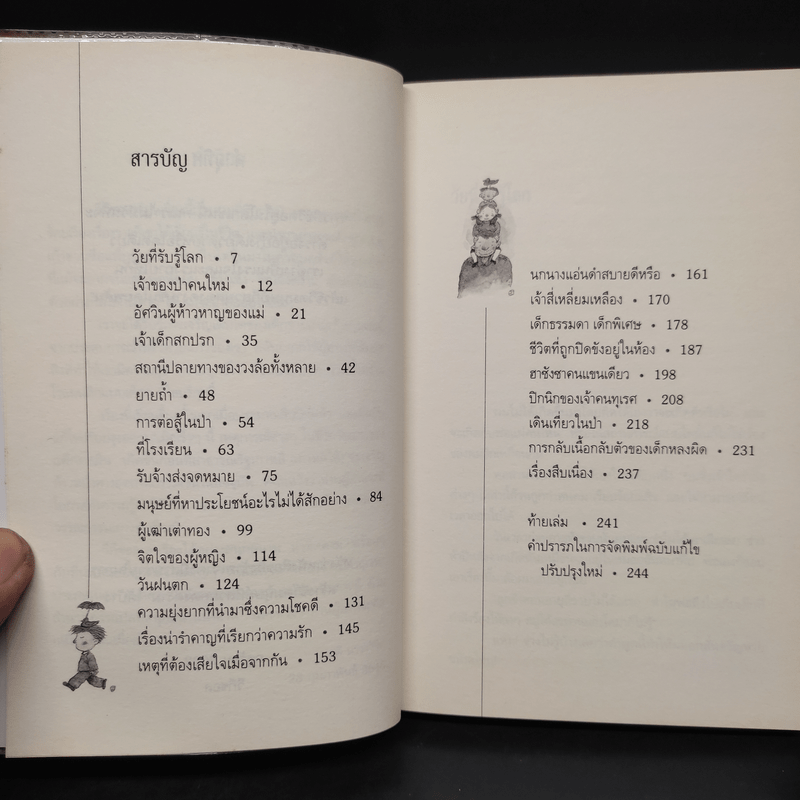 สารบัญ
วัยที่รับรู้โลก • 7
เจ้าของป่าคนใหม่ • 12
อัศวินผู้ห้าวหาญของแม่ • 21
เจ้าเด็กสกปรก • 35
สถานีปลายทางของวงล้อทั้งหลาย • 42
ยายถ้ำ • 48
การต่อสู้ในป่า • 54
ที่โรงเรียน • 63
รับจ้างส่งจดหมาย • 75
มนุษย์ที่หาประโยชน์อะไรไม่ได้สักอย่าง • 84
ผู้เฒ่าเต่าทอง • 99
จิตใจของผู้หญิง • 114
วันฝนตก • 124
ความยุ่งยากที่นำมาซึ่งความโชคดี • 131
เรื่องน่ารำคาญที่เรียกว่าความรัก • 145
เหตุที่ต้องเสียใจเมื่อจากกัน • 153
นกนางแอ่นดำสบายดีหรือ • 161
เจ้าสี่เหลี่ยมเหลือง • 170
เด็กธรรมดา เด็กพิเศษ • 178
ชีวิตที่ถูกปิดขังอยู่ในห้อง • 187
ฮาซังซาคนแขนเดียว • 198
ปิกนิกของเจ้าคนทุเรศ • 208
เดินเที่ยวในป่า • 218
การกลับเนื้อกลับตัวของเด็กหลงผิด • 231
เรื่องสืบเนื่อง • 237
ท้ายเล่ม • 241
คำปรารภในการจัดพิมพ์ฉบับแก้ไข
ปรับปรุงใหม่ • 244